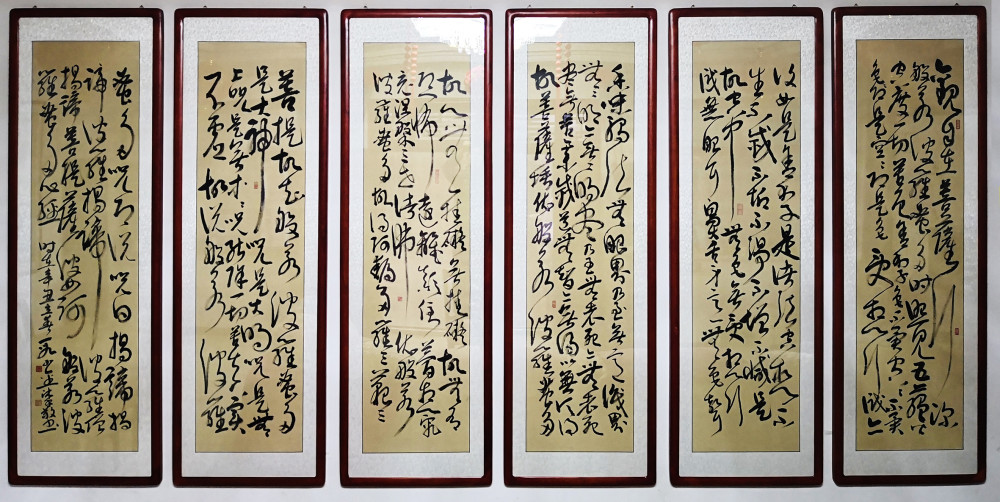 觀自在菩薩行深
般若波羅蜜多時照見五蘊皆
空度一切苦厄舍利子色不異空空不異
色色即是空空即是色受想行識亦
復如是舍利子是諸法空相不
生不滅不垢不淨不增不減是
故空中無色無受想行
識無眼耳鼻舌身意無色聲
香味觸法無眼界乃至無意識界
無無明亦無無明盡乃至無老死亦無老死
盡無苦集滅道無智亦無得以無所得
故菩薩埵依般若波羅蜜多
故心無挂礙無挂礙故無有
恐怖遠離顛倒夢想究
竟涅槃三世諸佛依般若
波羅蜜多故得阿耨多羅三藐三
菩提故知般若波羅蜜多
是大神咒是大明咒是無
上咒是無等等咒能除一切苦真實
不虛故說般若波羅
蜜多咒即說咒曰揭諦揭
諦波羅揭諦波羅僧
揭諦菩提薩婆訶般若波
羅蜜多心經時在辛丑立春